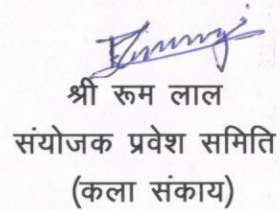 श्री रूम लाल
संयोजक प्रवेश समिति
(कला संकाय)